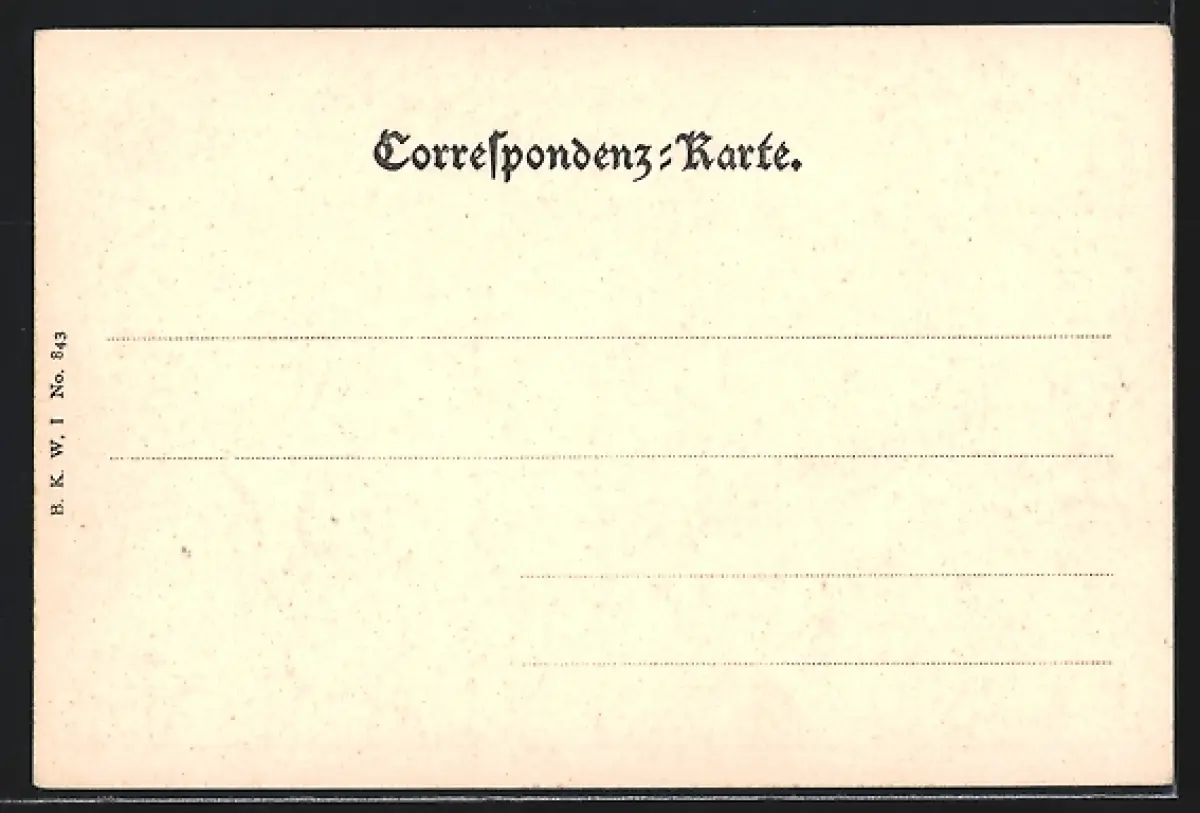 Correspondenz-Karte.
B. K. W. I No. 843